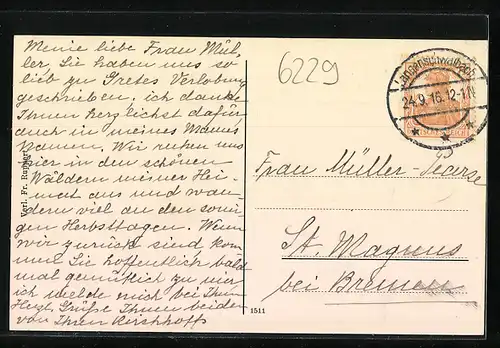 Meine liebe Frau Mül-
ler, Sie haben uns so
lieb zu Gretes Verlobung
geschrieben. ich danke
Ihnen herzlichst dafür
auch in meines Manns
Namen. Wir ruhen uns
hier in den schönen
Wäldern meiner Hei-
mat aus und wan-
dern viel an den sonni-
gen Herbsttagen. Wenn
wir zurück sind kom
men Sie hoffentlich bald
mal gemütlich zu mir
ich melde mich bei Ihnen
Herzl. Grüße Ihnen beiden
von Ihren Kirschhoffs
Verl. Fr. Rumpf
1511
6229
Langenschwalbach
24.9.16.12-1N
Frau Müller-
St. Magnus
bei Bremen